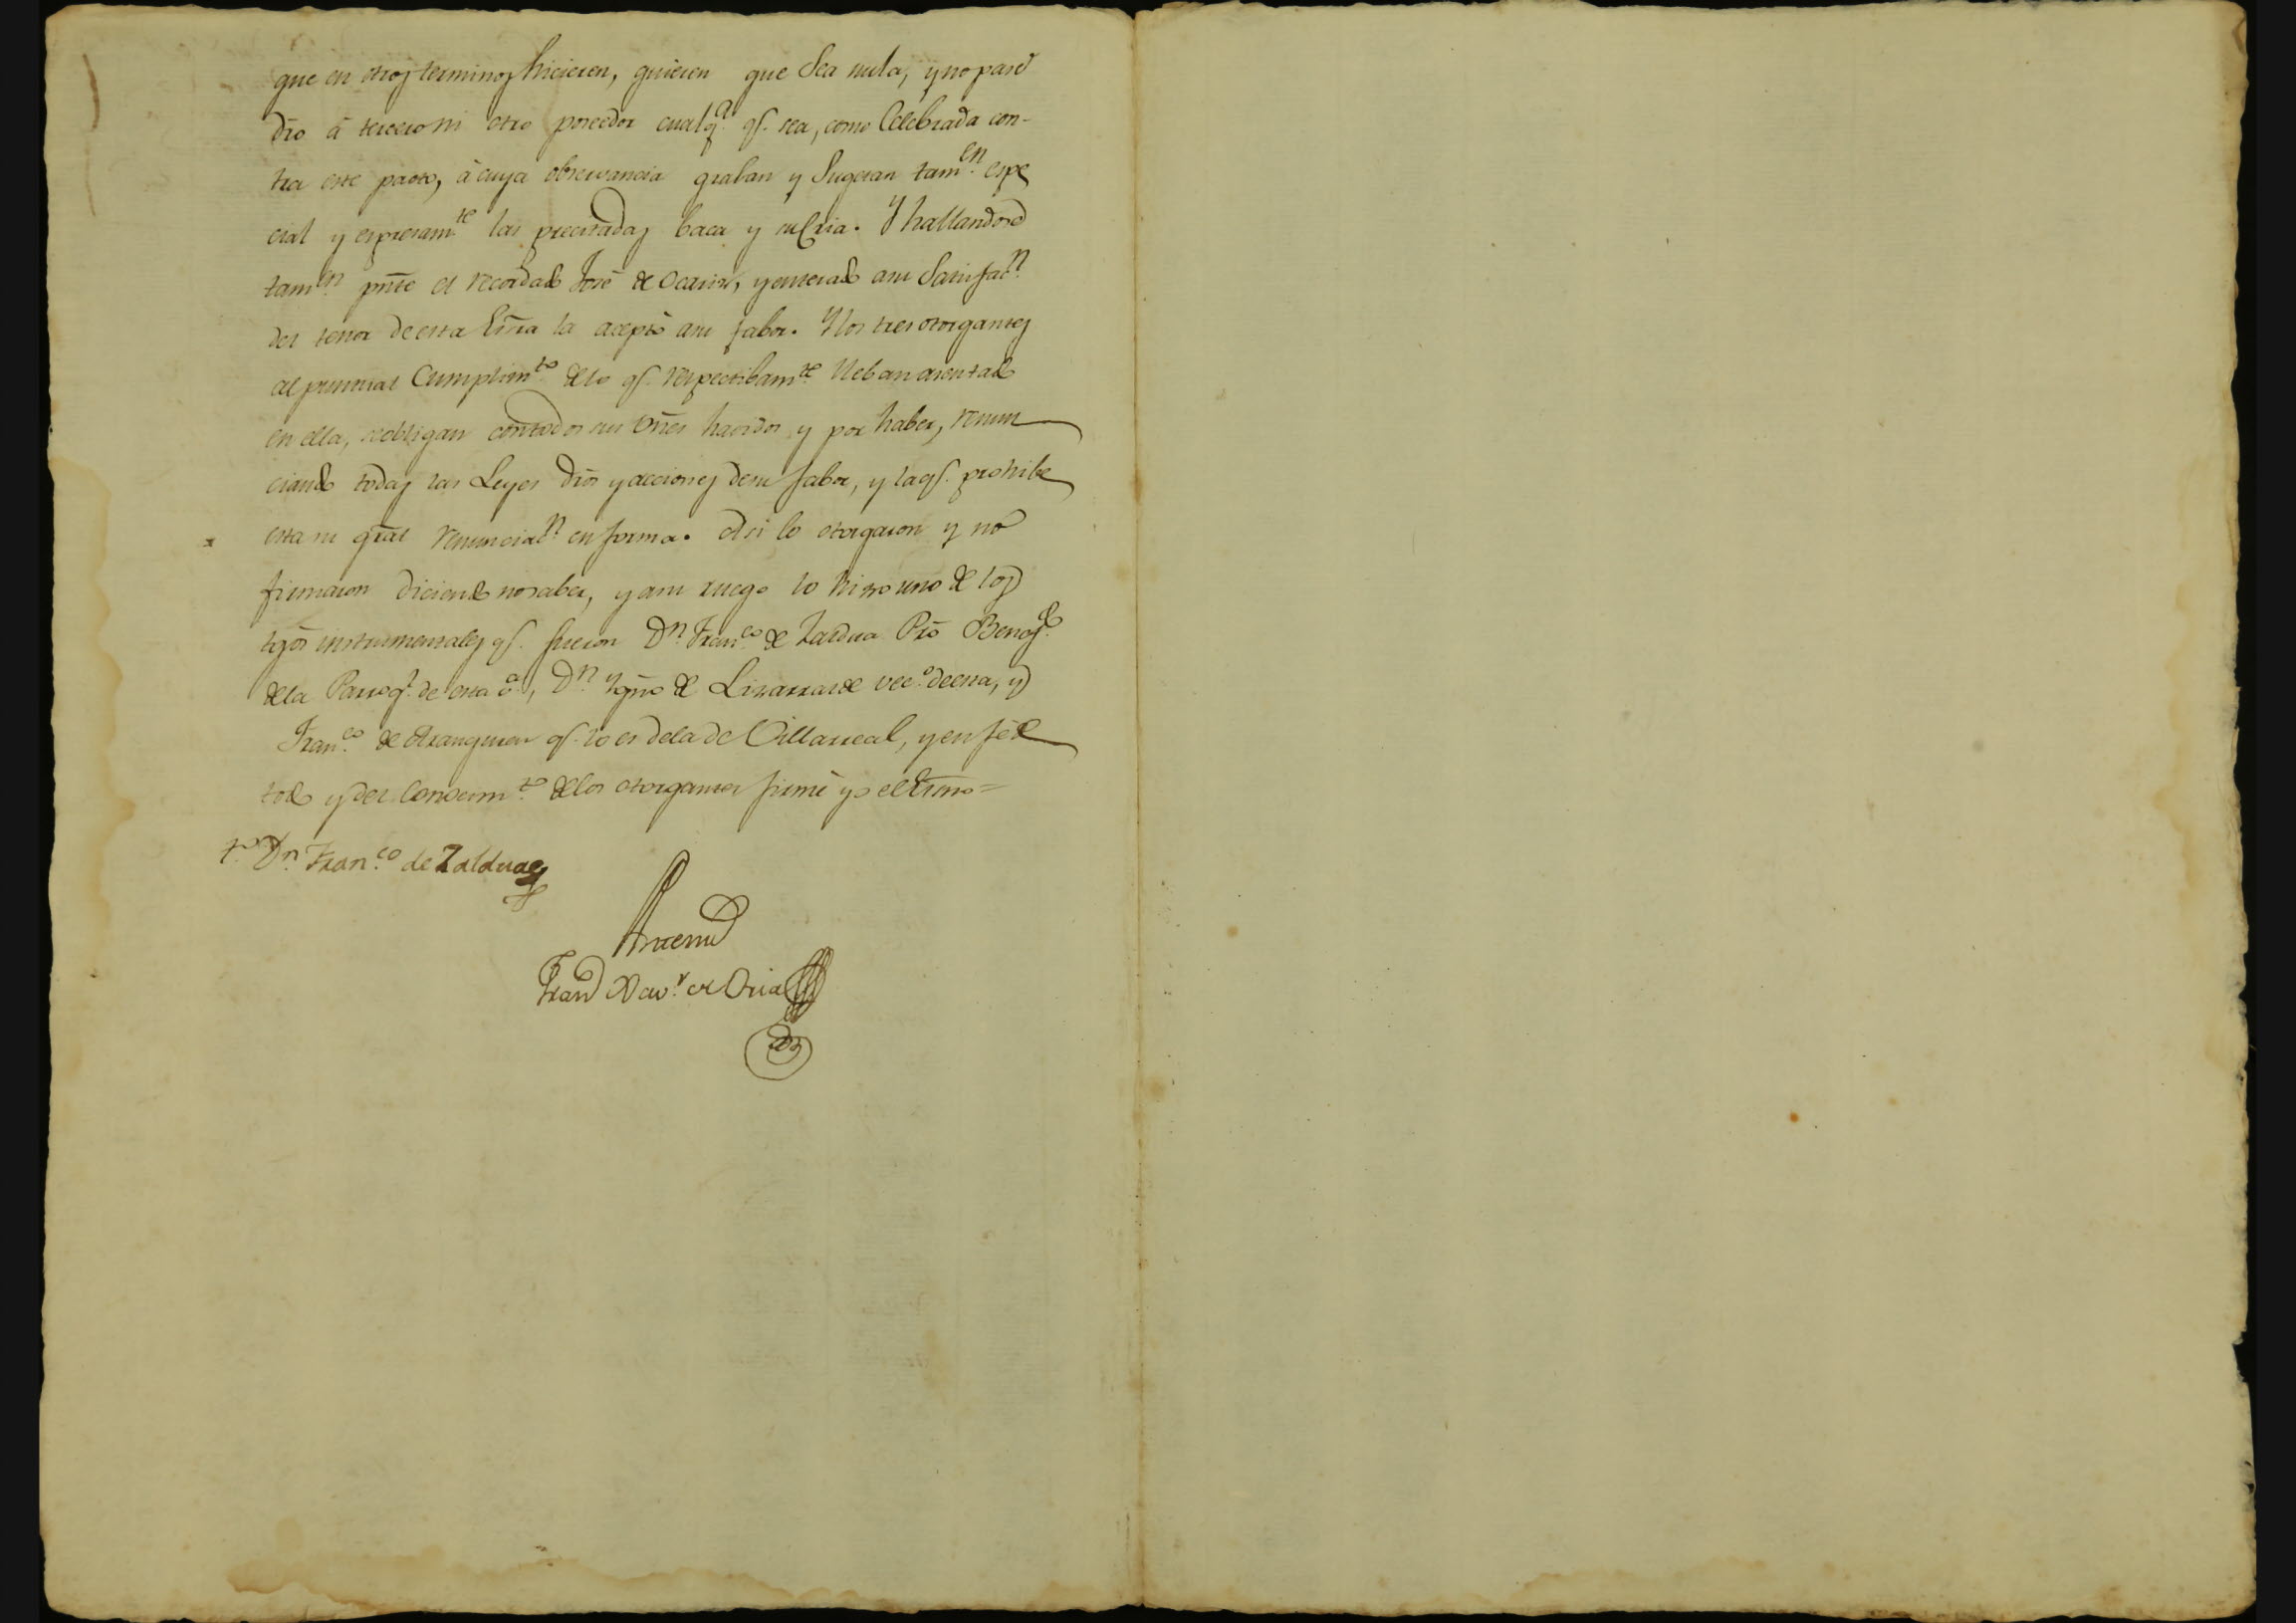 que en otros terminos hicieren, quieren que Sea nula, y no pase
dro â tercero ni otro poseedor cualq.ª q.e sea, como Celebrada con-
tra este pacto, à cuya observancia graban y Sugetan tam.en espe
cial y espresam.te las precitadas baca y su Cria. Y hallandose
tam.en pnte el recordado José de Ocariz, y enterado a su Satisfac.n
del tenor de esta Esra la aceptò a su fabor. Y los tres otorgantes
al puntual Cumplim.to de lo q.e respectibam.te lleban asentado
en ella, se obligan con todos sus vnes havidos y por haber, renun
ciando todas las Leyes dros y acciones de su fabor, y la q.e prohibe
esta su gral renunciac.n en forma. Asi lo otorgaron y no
firmaron diciendo no saber, y a su ruego lo hizo uno de los
tgos instrumentales q.e fueron D.n Fran.co de Zaldua Pro Benef.do
de la Parroq.l de esta v.ª, D.n Ygno de Lizarralde vec.º de esta, y
Fran.co de Aranguren q.e lo es de la de Villarreal, y en fè de
todo y del Conocim.to de los otorgantes firmè yo el Esno=
t.º D.n Fran.co de Zaldua
Antemi
Fran.co Xav.r de Oria